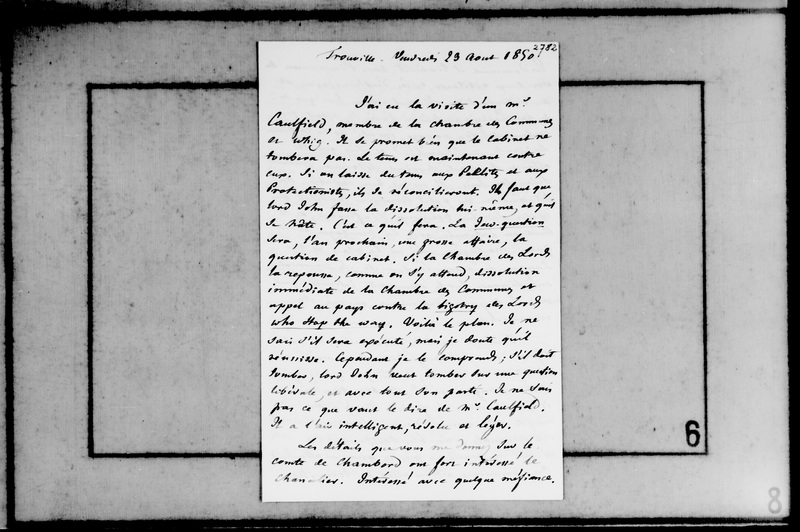 2782
Trouville - Vendredi 23 Aout 1850.
J'ai eu la visite d'un Mr.
Caulfield, membre de la chambre des Communes
et Whig. Il se promet bien que le Cabinet ne
tombera pas. Le tems est maintenant contre
eux. Si on laisse du tems aux Peelites et aux
Protectionnistes, ils se réconcilieront. Il faut que
lord John fasse la dissolution lui même, et qu'il
se hâte. C'est ce qu'il fera. La Jew-question
sera, l'an prochain, une grosse affaire, la
question de cabinet. Si la Chambre des Lords
la repousse, comme on s'y attend, dissolution
immédiate de la Chambre des Communes et
appel au pays contre la bigotry des Lords
who stop the way. Voilà le plan. Je ne
sais s'il sera exécuté, mais je doute qu'il
réussisse. Cependant je le comprends ; s'il doit
tomber, lord John veut tomber sur une question
libérale, et avec tout son parti. Je ne sais
pas ce que vaut le dire de Mr. Caulfield.
Il a l'air intelligent, résolu et léger.
Les détails que vous me donnez sur le
comte de Chambord ont fort intéressé le
Chancelier. Intéressé avec quelque méfiance.
6
8